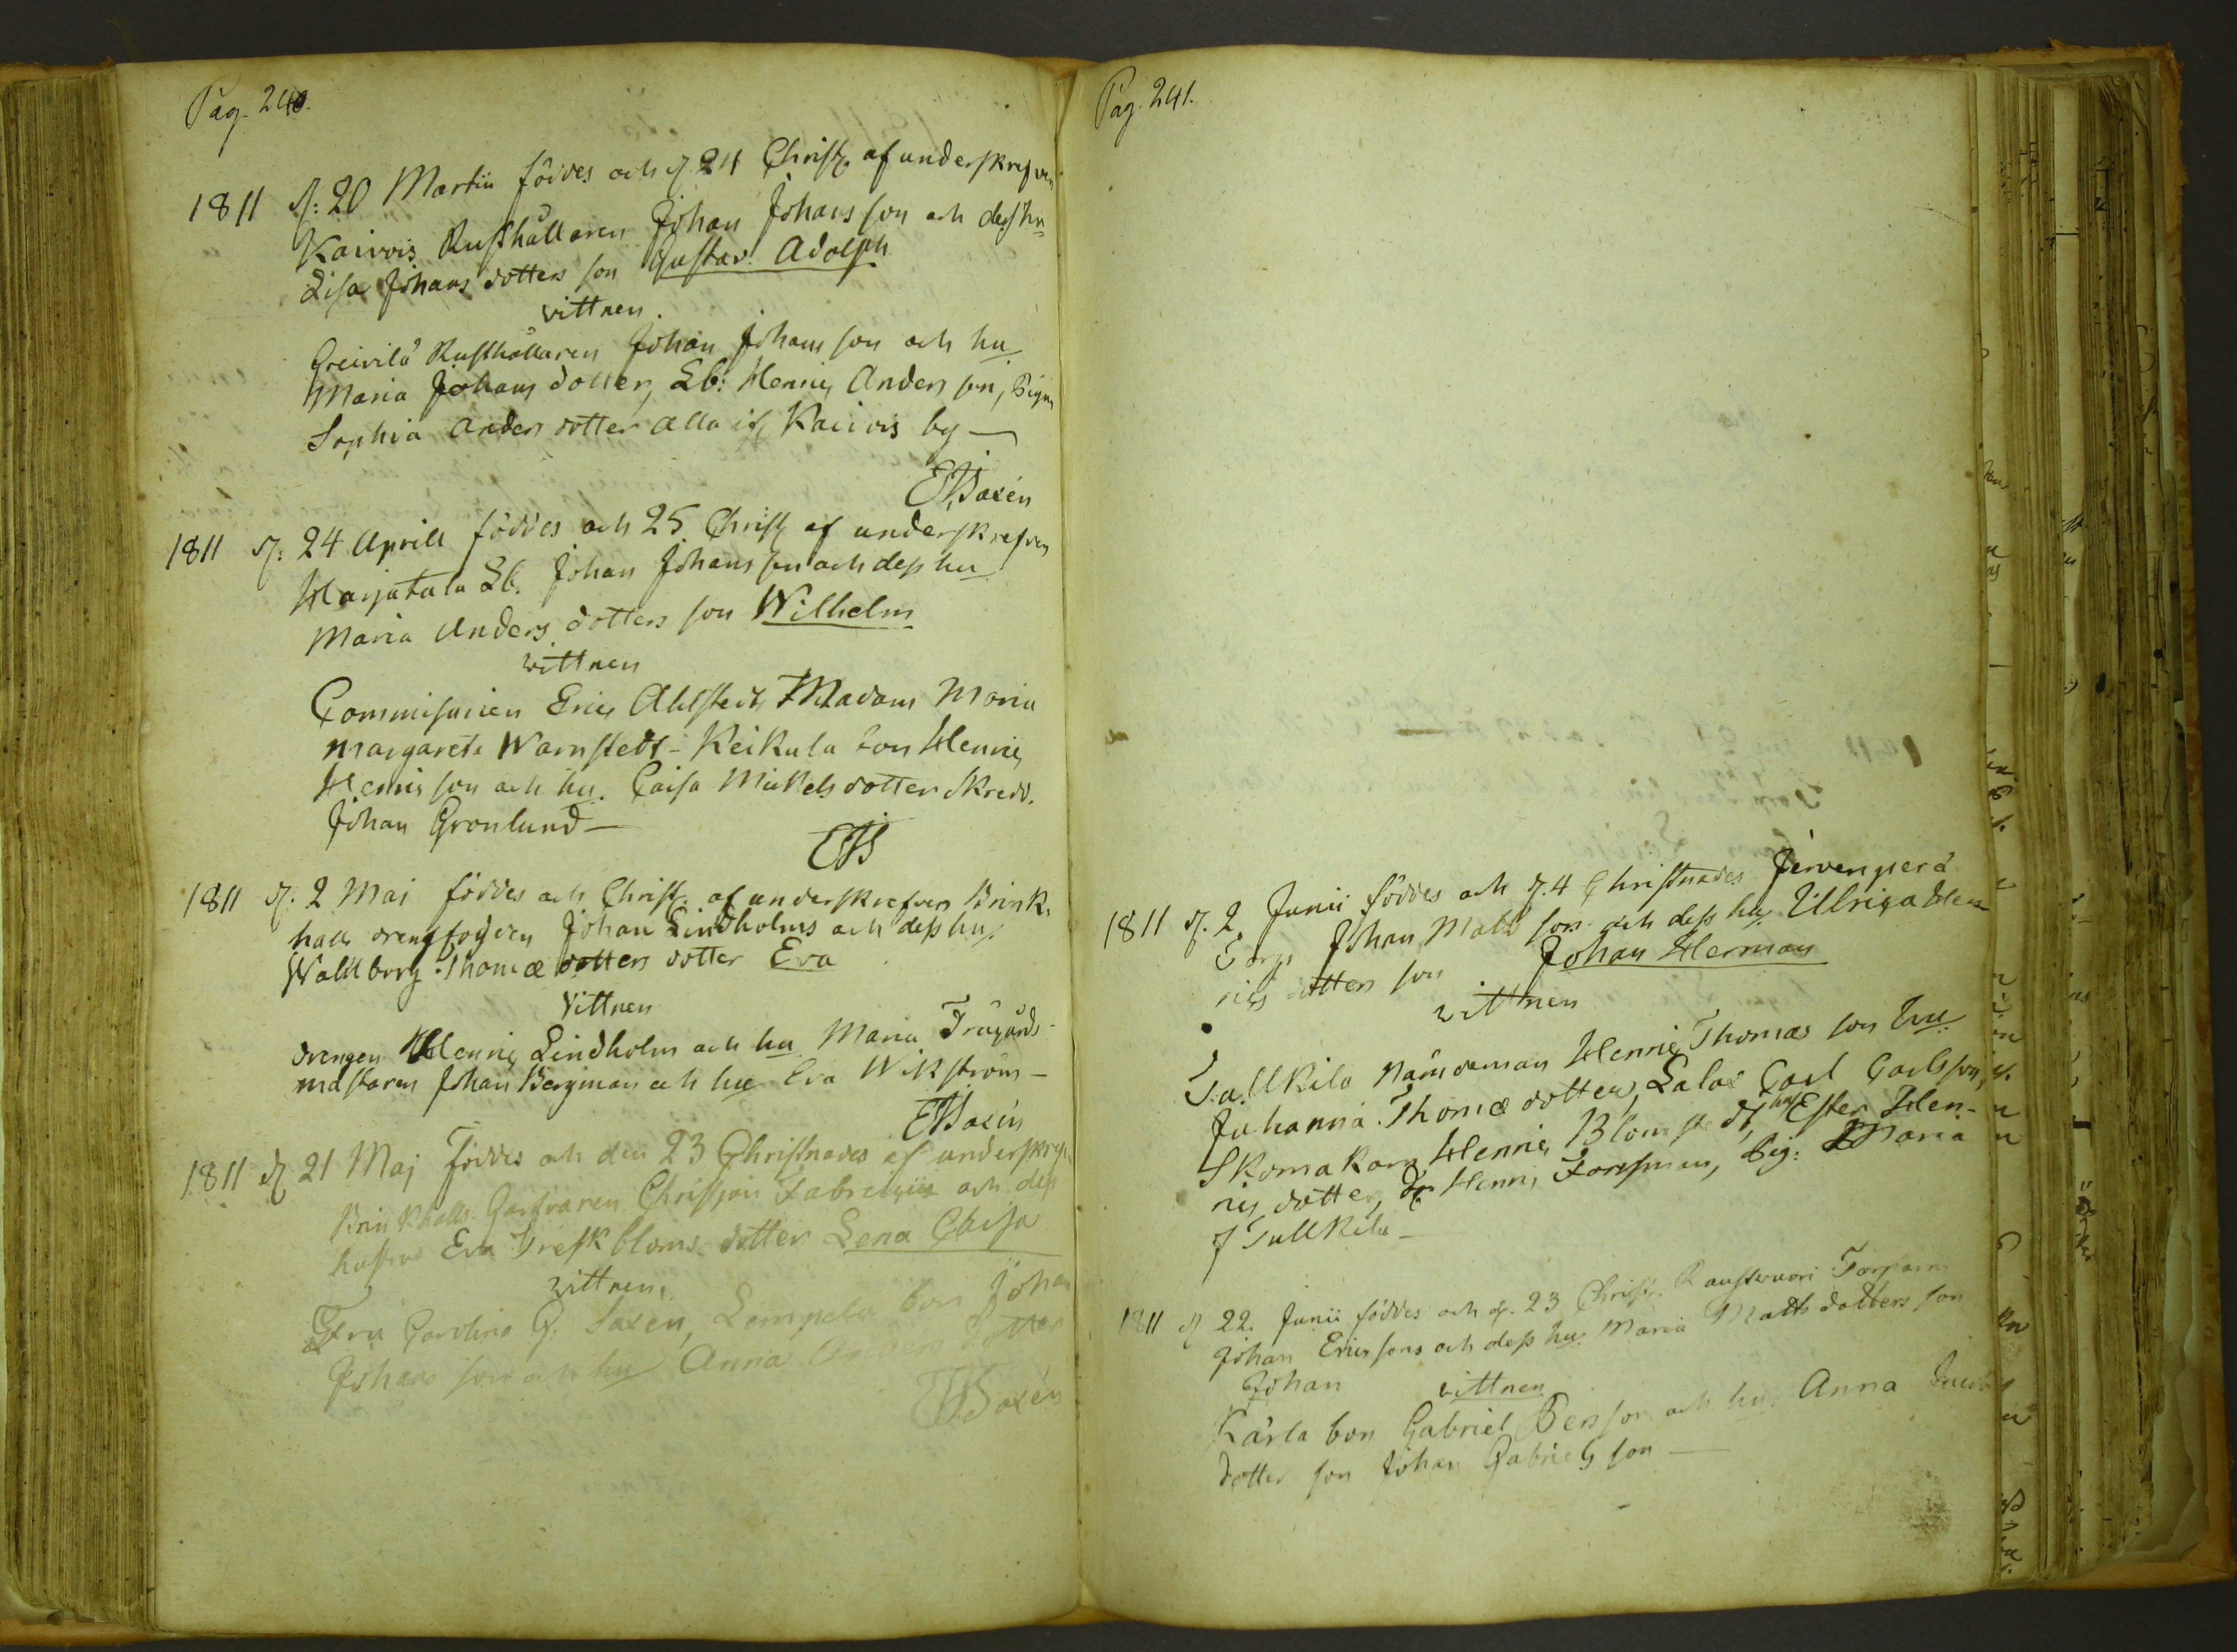 Pag. 240.
1811 d: 20 Martii föddes och d 24 Christ. af underskrefven
Kaivois Rusthållaren Johan Johans son och dess hu
Lisa Johans dotters son Gustav Adolph
vittnen.
Greivilä Rusthållaren Johan Johans son och hu
Maria Johans dotter, Lb: Henric Anders son, Pigan
Sophia Anders dotter alla if Kaivois by —
1811 d: 24 Aprill föddes och 25 Christ af underskrefven
Harjatula Lb. Johan Johans son och dess hu
Maria Anders dotters son Wilhelm
vittnen
Commisarien Eric Ahlstedt Madam Maria
Margareta Warnstedt - Keikula bon Henric
Henric son och hu. Caisa Mickels dotter Skredd.
Johan Gronlund —
1811 d. 2 Maj föddes och Christ. af underskrefven Brink
halls drengfogden Johan Lindholms och dess hu
Wallborg Thomæ dotters dotter Eva
Vittnen
drengen Henric Lindholm och hu Maria Trägårds-
mästaren Johan Bergman och hu Eva Wikström —
1811 d 21 Maj föddes och den 23 Christnades af underskref.
Brinkhalls Garfvaren Christian Fabricius och dess
hustrus Eva Freskbloms dotter Lena Caisa
vittnen,
Fru Carolina G. Saxen, Lempela bon Johan
Johans son och hu Anna dotter
Pag. 241.
1811 d. 2. Junii föddes och d. 4 Christnades Jervenperä
Torp. Johan Matts son och dess hu Ullrica Hen
rics dotters son Johan Herman
vittnen
Tullkila Nämdeman Henric Thomas son hu
Johanna Thomæ dotter, Lalax Carl Carlsson,
Skomakarn Henric Blomstedt, hu Ester Hen-
rics dotter, Dr Henric Forssman, Pig: Maria
f Tullkila —
1811 d 22. Junii föddes och d. 23 Christ. Torparn
Johan Ericssons och dess hu. Maria Matts dotters son
Johan vittnen
Kärla bon Gabriel Persson och hu. Anna
dotter son Johan Gabriels son —